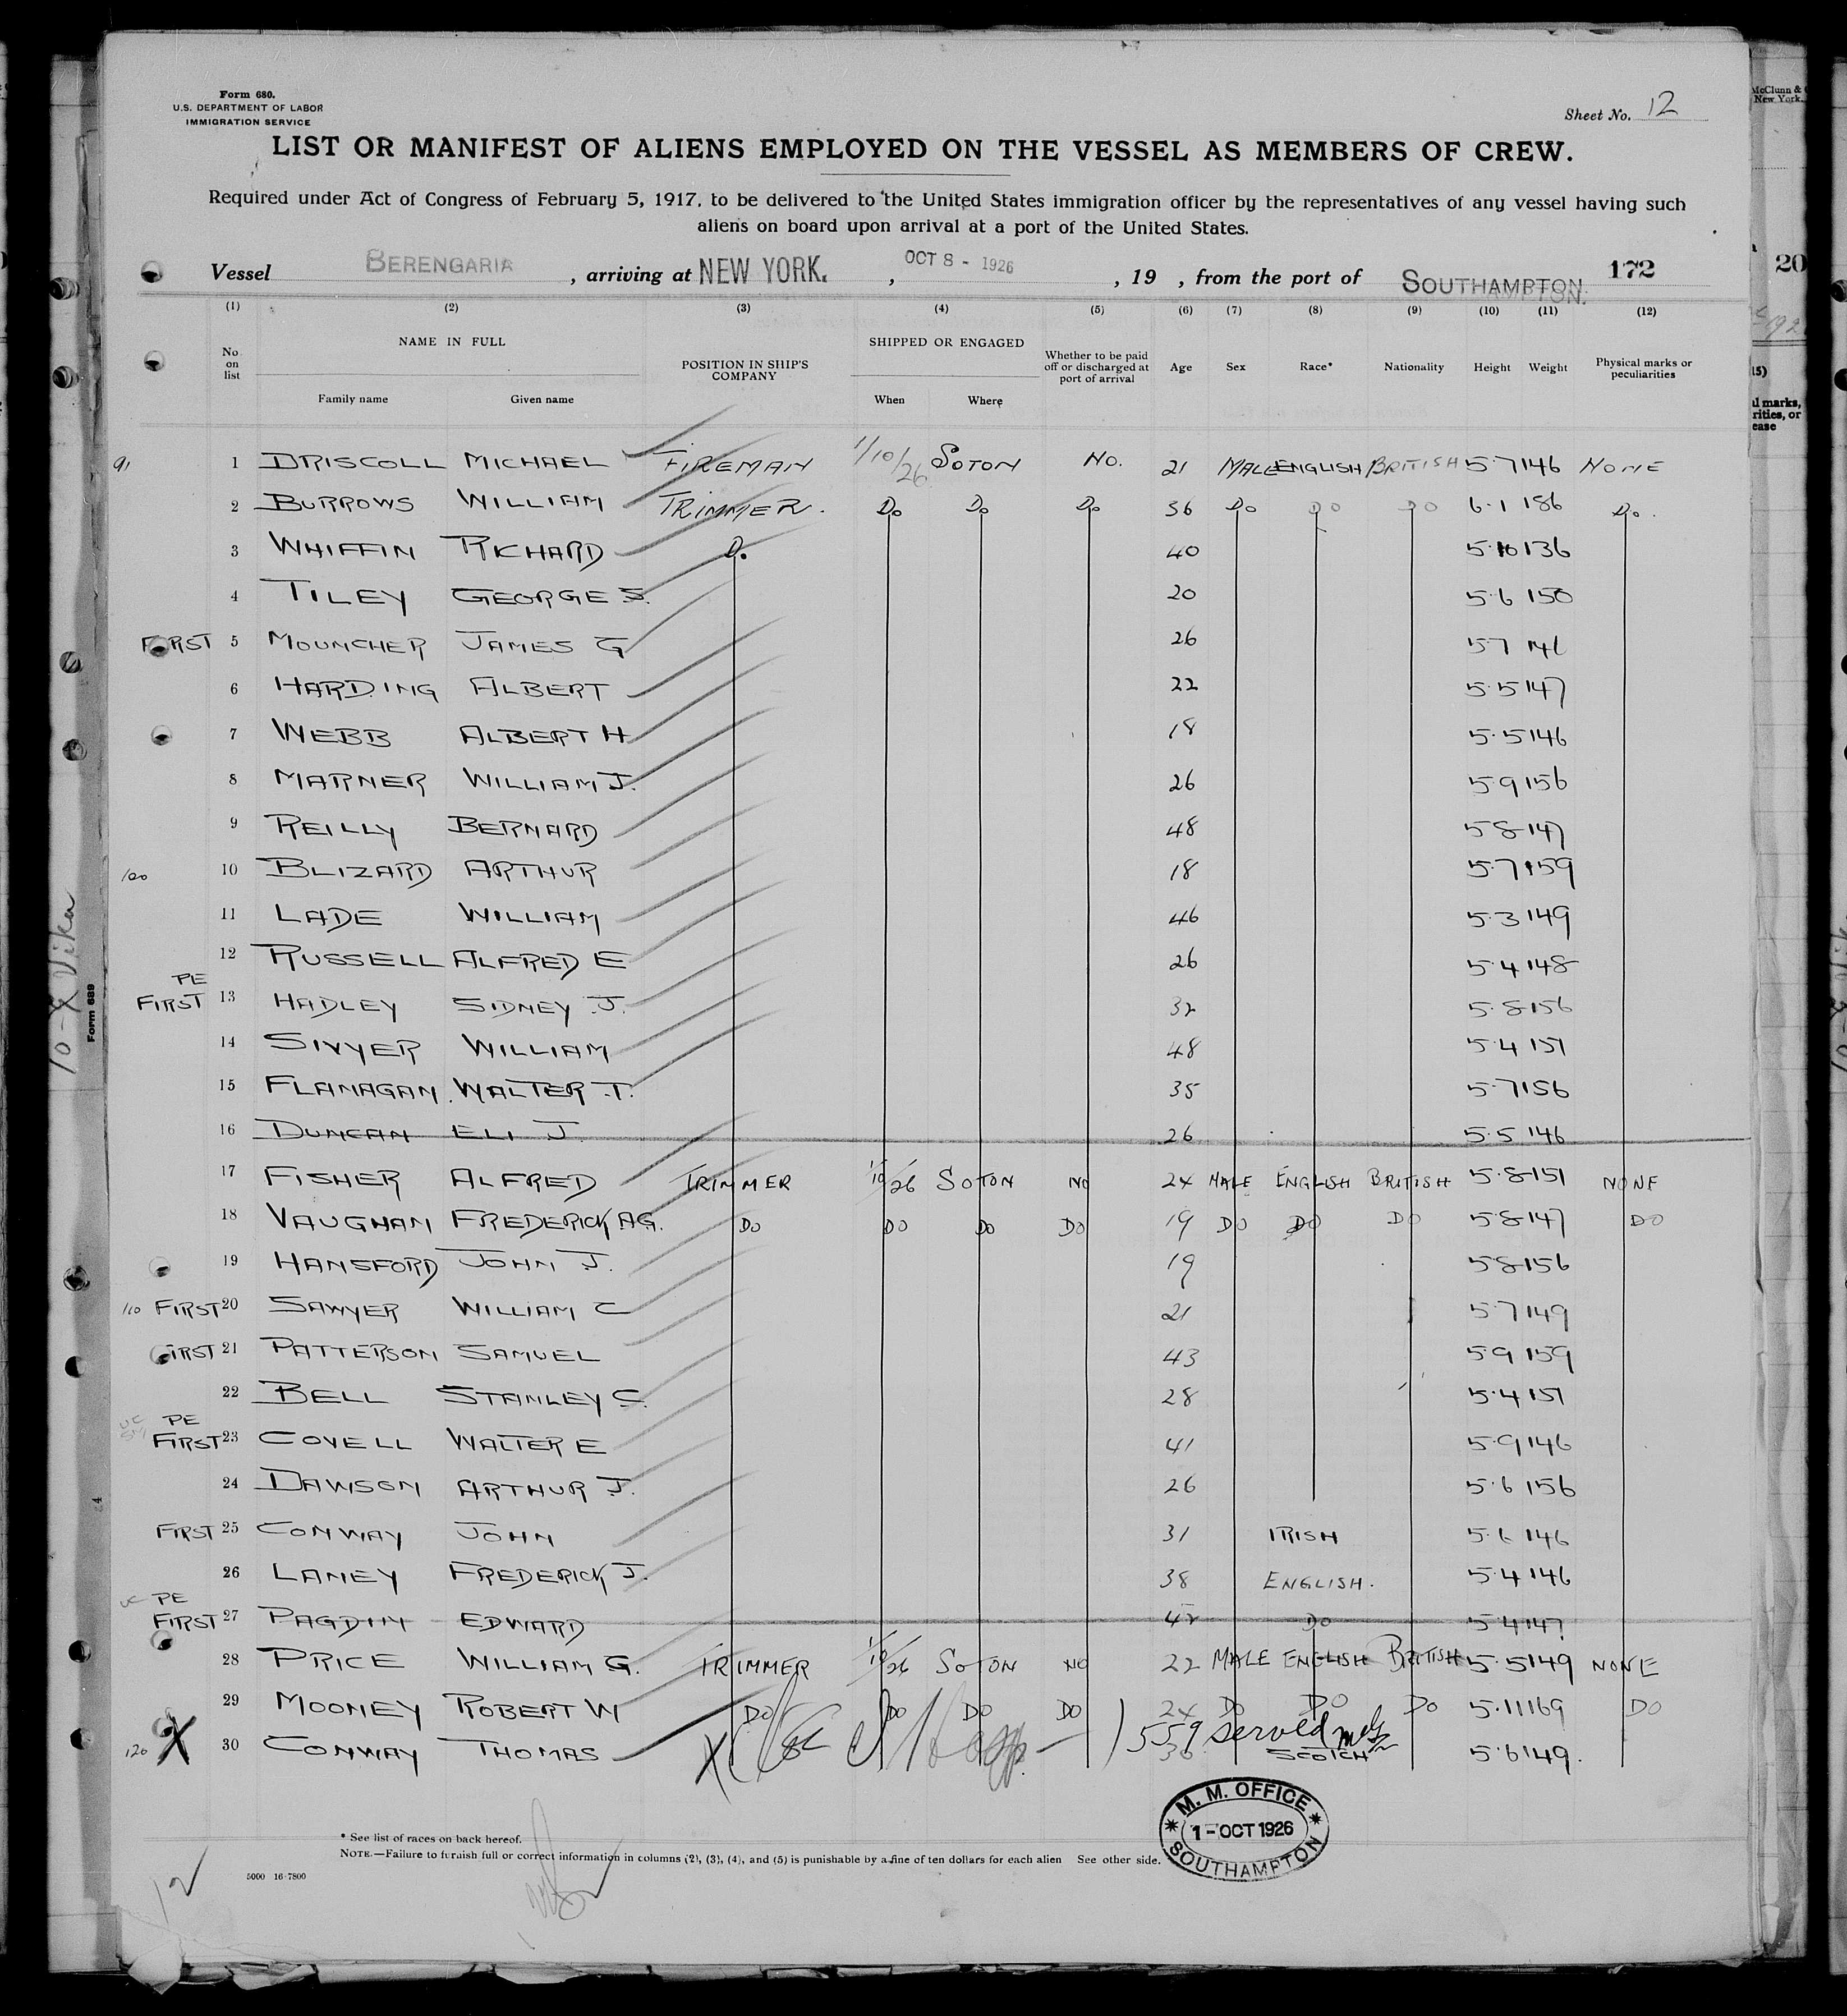 Form 680.
U.S. DEPARTMENT OF LABOR
IMMIGRATION SERVICE
Sheet No. 12
LIST OR MANIFEST OF ALIENS EMPLOYED ON THE VESSEL AS MEMBERS OF CREW.
Required under Act of Congress of February 5, 1917, to be delivered to the United States immigration officer by the representatives of any vessel having such
aliens on board upon arrival at a port of the United States.
Vessel BERENGARIA , arriving at NEW YORK. , OCT 8 - 1926 , 19 , from the port of SOUTHAMPTON. 172
(1) (2) (3) (4) (5) (6) (7) (8) (9) (10) (11) (12)
No. on list NAME IN FULL Family name Given name POSITION IN SHIP'S COMPANY SHIPPED OR ENGAGED When Where Whether to be paid off or discharged at port of arrival Age Sex Race* Nationality Height Weight Physical marks or peculiarities
91 1 DRISCOLL MICHAEL FIREMAN 1/10/26 SOTON NO. 21 MALE ENGLISH BRITISH 5·7 146 NONE
2 BURROWS WILLIAM TRIMMER. Do Do Do 36 Do Do Do 6·1 186 Do.
3 WHIFFIN RICHARD Do 40 5·10 136
4 TILEY GEORGE S. 20 5·6 150
FIRST 5 MOUNCHER JAMES G 26 5·7 146
6 HARDING ALBERT 22 5·5 147
7 WEBB ALBERT H 18 5·5 146
8 MARNER WILLIAM J. 26 5·9 156
9 REILLY BERNARD 48 5·8 147
100 10 BLIZARD ARTHUR 18 5·7 159
11 LADE WILLIAM 46 5·3 149
12 RUSSELL ALFRED E 26 5·4 148
PE
FIRST 13 HADLEY SIDNEY J. 32 5·8 156
14 SIVYER WILLIAM 48 5·4 151
15 FLANAGAN. WALTER T. 35 5·7 156
16 DUNCAN ELI J 26 5·5 146
17 FISHER ALFRED TRIMMER 1/10/26 SOTON NO 24 MALE ENGLISH BRITISH 5·8 151 NONE
18 VAUGHAN FREDERICK A.G. DO DO DO DO 19 DO DO DO 5·8 147 DO
19 HANSFORD JOHN J. 19 5·8 156
110 FIRST 20 SAWYER WILLIAM C 21 5·7 149
FIRST 21 PATTERSON SAMUEL 43 5·9 159
22 BELL STANLEY C. 28 5·4 151
PE
FIRST 23 COVELL WALTER E 41 5·9 146
24 DAWSON ARTHUR J. 26 5·6 156
FIRST 25 CONWAY JOHN 31 IRISH 5·6 146
26 LANEY FREDERICK J. 38 ENGLISH. 5·4 146
PE
FIRST 27 PAGDIN EDWARD 42 DO 5·4 147
28 PRICE WILLIAM G. TRIMMER 1/10/26 SOTON NO 22 MALE ENGLISH BRITISH 5·5 149 NONE
29 MOONEY ROBERT W DO DO DO DO 24 DO DO DO 5·11 169 DO
120 X 30 CONWAY THOMAS X 559 served SCOTCH 5·6 149.
* See list of races on back hereof.
NOTE.—Failure to furnish full or correct information in columns (2), (3), (4), and (5) is punishable by a fine of ten dollars for each alien See other side.
5000 16-7800
12
M. M. OFFICE
1 - OCT 1926
SOUTHAMPTON
Form 689
McClunn &
New York.
20